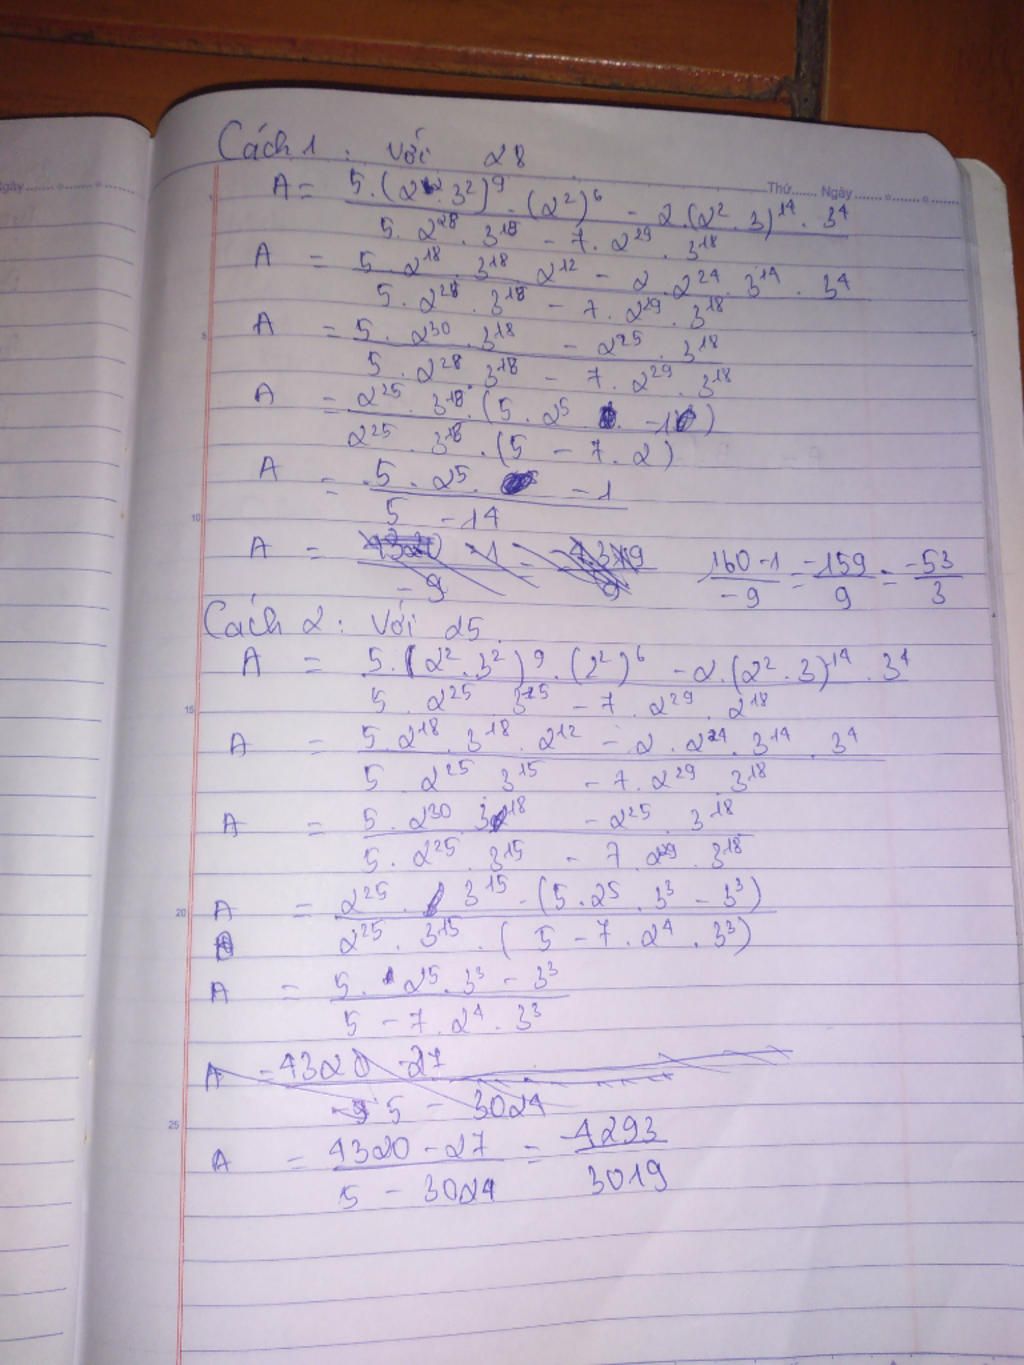 Cách 1 : Với 28
Thứ...... Ngày......
Ngày......
A = 5.(2² . 3²)⁹ . (2²)⁶ - 2.(2² . 3)¹⁴ . 3⁴
5. 2²⁸ . 3¹⁸ - 7. 2²⁹ . 3¹⁸
A = 5. 2¹⁸ . 3¹⁸ . 2¹² - 2 . 2²⁴ . 3¹⁴ . 3⁴
5 . 2²⁸ . 3¹⁸ - 7. 2²⁹ . 3¹⁸
5
A = 5. 2³⁰ . 3¹⁸ - 2²⁵ . 3¹⁸
5 . 2²⁸ . 3¹⁸ - 7 . 2²⁹ . 3¹⁸
A = 2²⁵ . 3¹⁸ . (5 . 2⁵ - 1)
2²⁵ . 3¹⁸ . (5 - 7 . 2)
A = 5 . 2⁵ - 1
10
5 - 14
A = 160 - 1 = -159 = -53
-9 9 3
Cách 2 : Với 25
A = 5.(2² . 3²)⁹ . (2²)⁶ - 2.(2² . 3)¹⁴ . 3⁴
15
5 . 2²⁵ . 3¹⁵ - 7 . 2²⁹ . 2¹⁸
A = 5. 2¹⁸ . 3¹⁸ . 2¹² - 2 . 2²⁴ . 3¹⁴ . 3⁴
5 . 2²⁵ 3¹⁵ - 7. 2²⁹ . 3¹⁸
A = 5 . 2³⁰ 3¹⁸ - 2²⁵ . 3¹⁸
5. 2²⁵ . 3¹⁵ - 7 . 2²⁹ . 3¹⁸
20
A = 2²⁵ . 3¹⁵ . (5 . 2⁵ . 3³ - 3³)
2²⁵ . 3¹⁵ . ( 5 - 7 . 2⁴ . 3³)
A = 5 . 2⁵ . 3³ - 3³
5 - 7 . 2⁴ . 3³
A = 4320 - 27
5 - 3024
25
A = 4320 - 27 = -4293
5 - 3024 3019